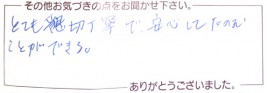 その他お気づきの点をお聞かせ下さい。
とても親切丁寧で、安心してたのむ
ことができる。
ありがとうございました。